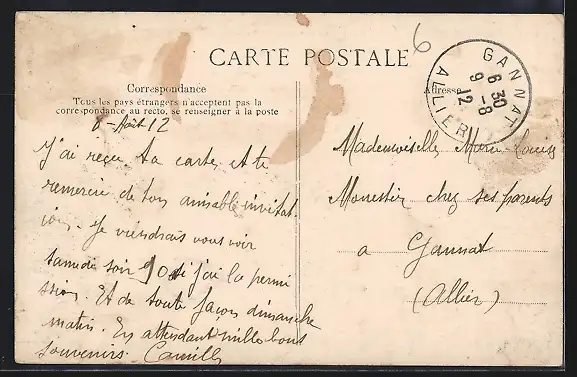 CARTE POSTALE
6
Correspondance
Tous les pays étrangers n'acceptent pas la
correspondance au recto, se renseigner à la poste
Adresse
GANNAT
6 30
9 -8
12
ALLIER
8 - Août 12
J'ai reçu ta carte, et te
remercie de ton aimable invitat
ion. Je viendrais vous voir
samedi soir 10 si j'ai la permi
ssion. Et de toute façon dimanche
matin. En attendant mille bons
souvenirs. Camille
Mademoiselle Marie Louise
Monestier chez ses parents
a Gannat
(Allier)